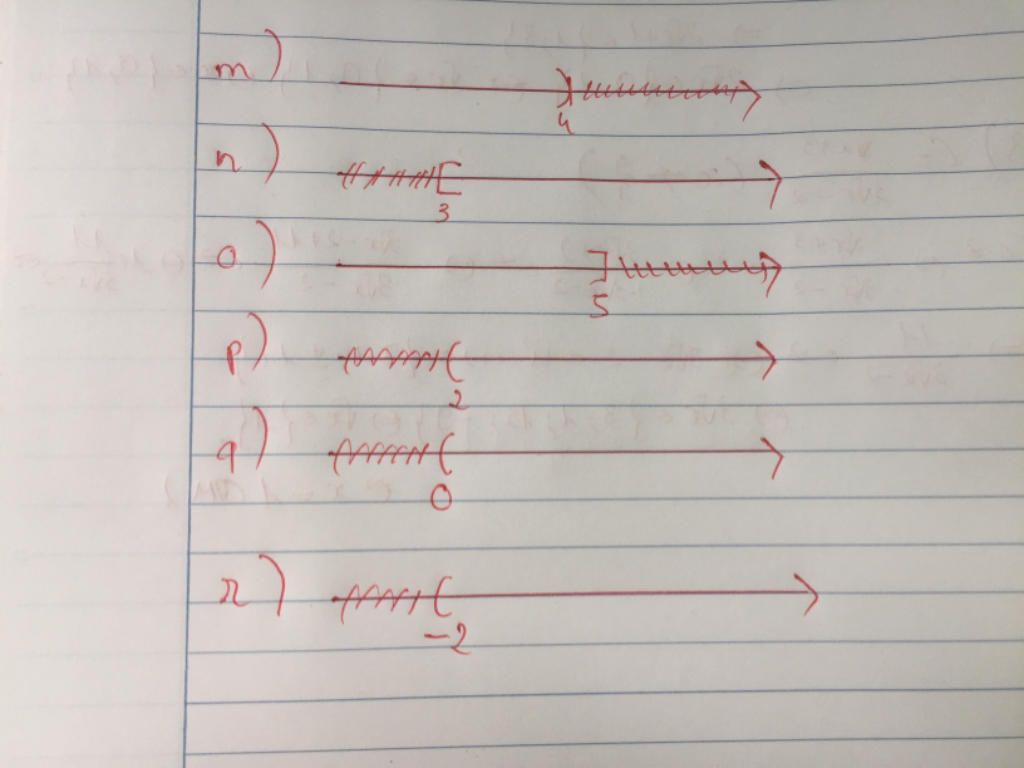 m)
)
4
n)
[
3
o)
]
5
p)
(
2
q)
(
0
r)
(
-2